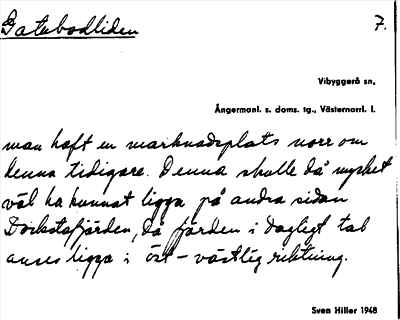 Gatubodliden 7.
Vibyggerå sn.
Ångermanl. s. doms. tg., Västernorrl. l.
man haft en marknadsplats norr om
denna tidigare. Denna skulle då mycket
väl ha kunnat ligga på andra sidan
Dockstafjärden, då fjärden i dagligt tal
anses ligga i öst-västlig riktning.
Sven Hiller 1948